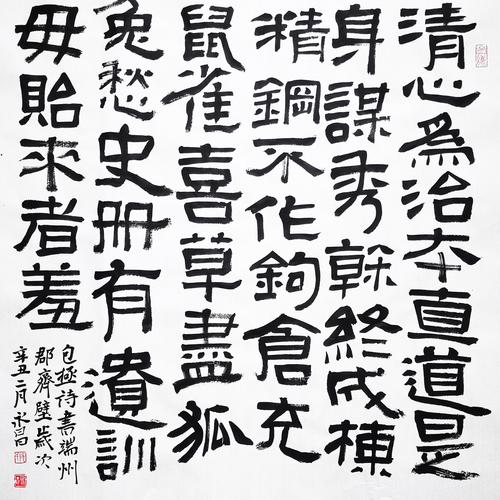 清心為治本直道是
身謀秀榦終成棟
精鋼不作鉤倉充
鼠雀喜草盡狐
兔愁史冊有遺訓
毋貽來者羞
包拯詩書端州
郡齋壁歲次
辛丑二月永昌